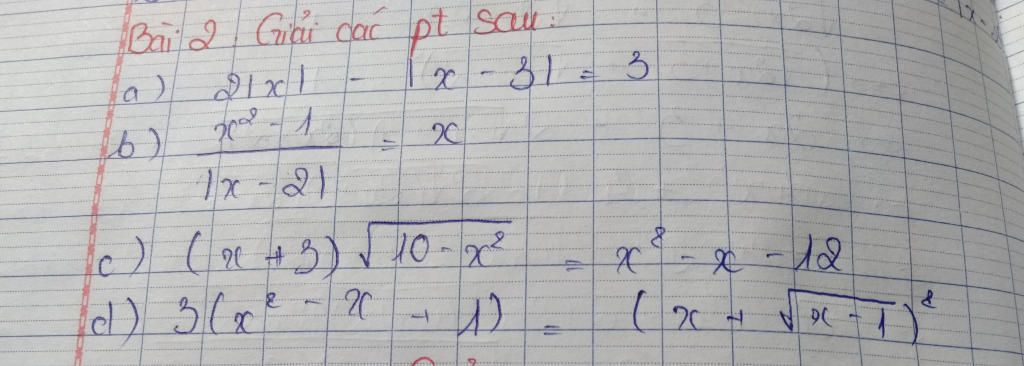 Bài 2. Giải các pt sau:
a) 2|x| - |x - 3| = 3
b) \frac{x² - 1}{|x - 2|} = x
c) (x + 3)\sqrt{10 - x²} = x² - x - 12
d) 3(x² - x + 1) = (x + \sqrt{x - 1})²